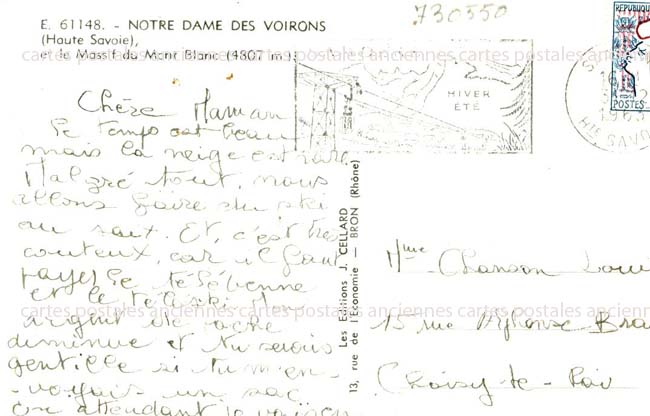 730550
E. 61148. - NOTRE DAME DES VOIRONS
(Haute Savoie),
et le Massif du Mont Blanc (4807 m.)
cartes postales anciennes cartes postales anciennes cartes postales anciennes cartes postales
REPUBLIQUE
POSTES
HIVER
ÉTÉ
16
1963
HTE SAVO
Chère Maman
Le temps est beau
mais la neige est rare
Malgré tout, nous
allons faire du ski
au saut. Et, c'est très
couteux, car il faut
payer le télébenne
et le téléski
argent de poche
diminue et tu serais
gentille si tu m'en-
-voyais un sac
en attendant
Les Editions J. CELLARD
13, rue de l'Economie - BRON (Rhône)
Mme Chanson Loui
15 rue Alphonse
Choisy-le-Roi
cartes postales anciennes cartes postales anciennes cartes postales anciennes cartes postales